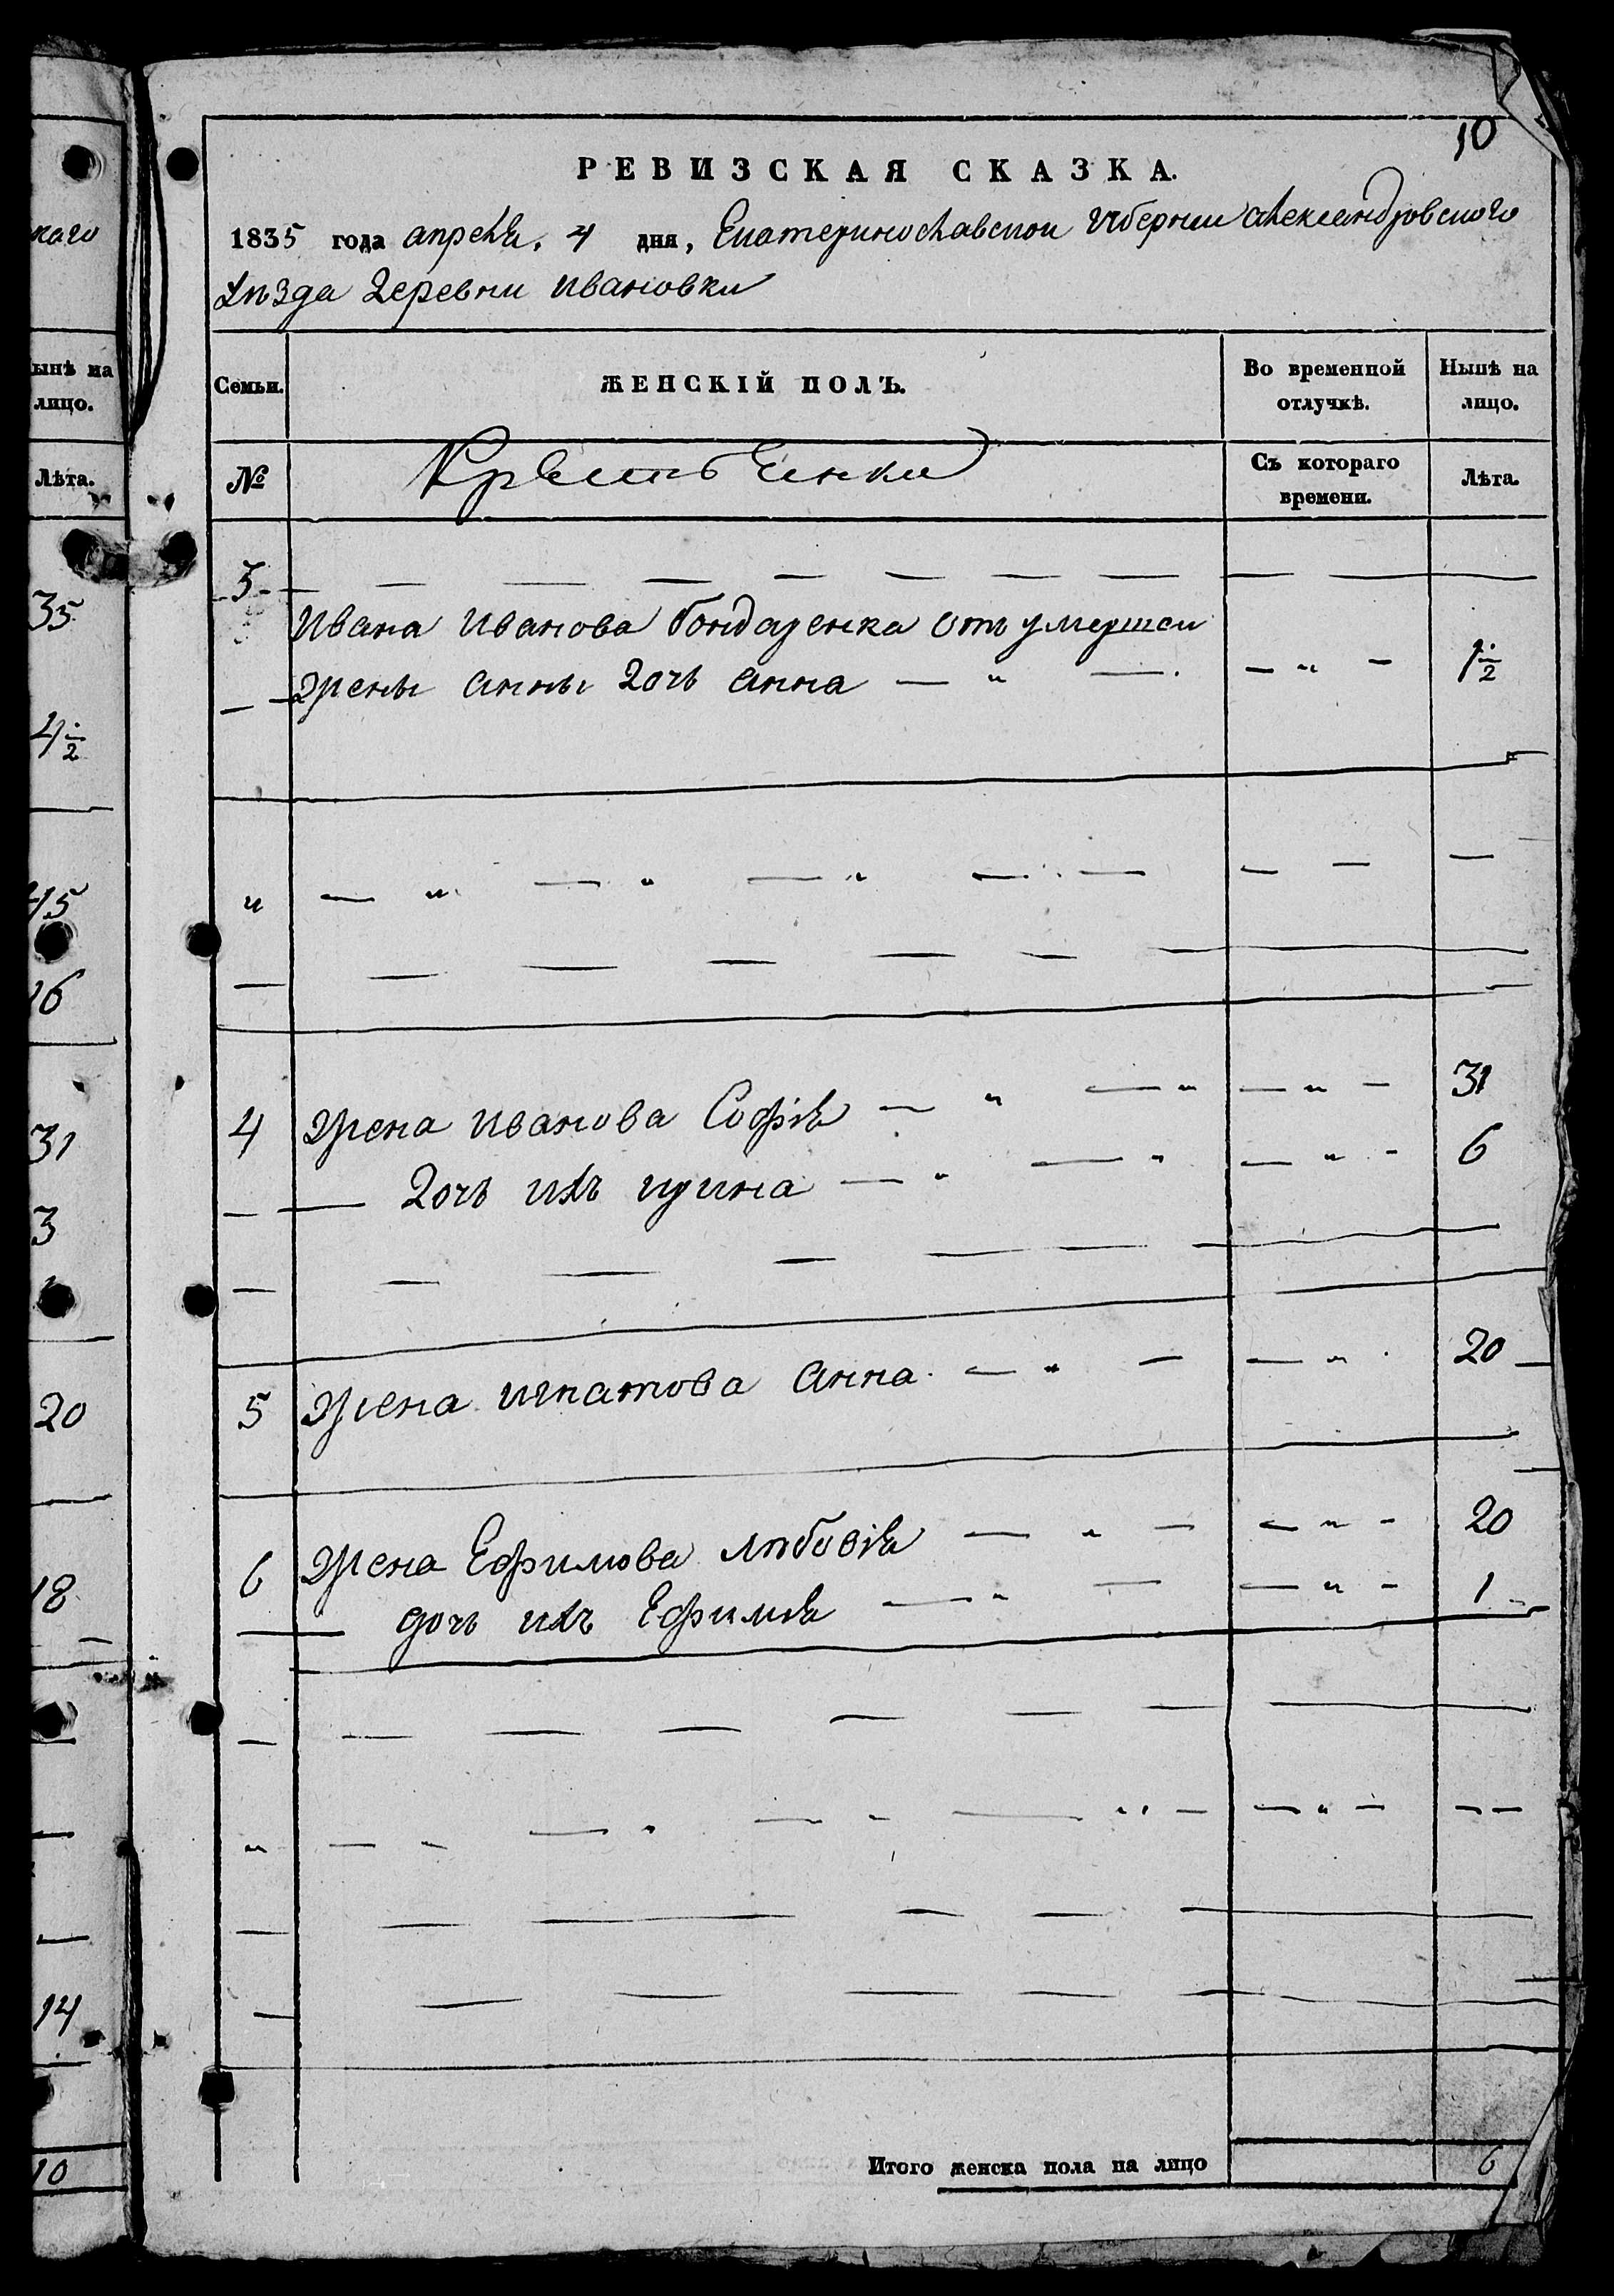 10
РЕВИЗСКАЯ СКАЗКА.
1835 года апреля, 4 дня, Екатеринославской губернии Александровского
уезда деревни Ивановки
Семьи. ЖЕНСКІЙ ПОЛЪ. Во временной отлучкѣ. Нынѣ на лицо.
№ Крестьянки Съ котораго времени. Лѣта.
3
Ивана Иванова бондаренка отъ умершей
жены анны дочь анна — " — — " — 1 1/2
4 жена иванова Софія — " — " — " — 31
— дочь ихъ ирина — " — " — " — 6
5 жена игнатова анна — " — — " 20
6 жена Ефимова любовія — " — — " — 20
дочь ихъ Ефимія — " — — " — 1
Итого женска пола на лицо 6
каго
ынѣ на
лицо.
Лѣта.
35
4 1/2
45
16
31
3
20
18
14
10